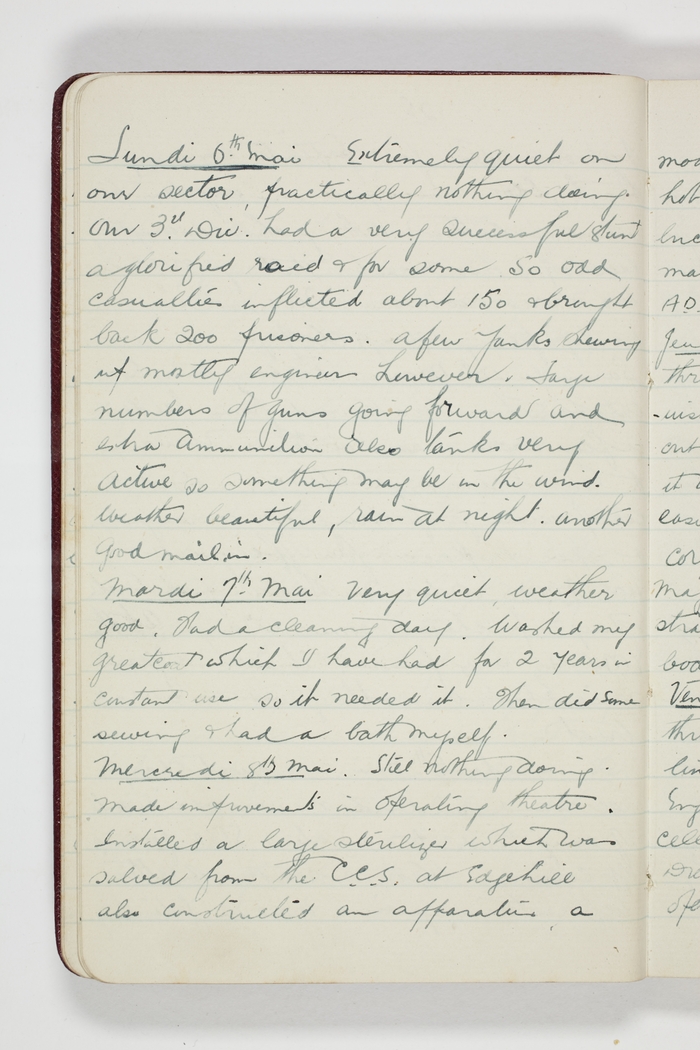 Lundi 6th Mai Extremely quiet on
our sector, practically nothing doing.
Our 3rd Div. had a very successful stunt
a glorified raid & for some 50 odd
casualties inflicted about 150 & brought
back 200 prisoners. a few Yanks showing
up mostly engineers however. Large
numbers of guns going forward and
extra Ammunition also tanks very
active so something may be in the wind.
Weather beautiful, rain at night. another
good mail in.
Mardi 7th Mai Very quiet, weather
good. Had a cleaning day. Washed my
greatcoat which I have had for 2 years in
constant use so it needed it. Then did some
sewing & had a bath myself.
Mercredi 8th Mai. Still nothing doing.
Made improvements in operating theatre.
Installed a large sterilizer which was
salved from the C.C.S. at Edgehill
also constructed an apparatus, a
hot
ma
thr
out
it
cor
ma
Ven
thr
lin
Eng